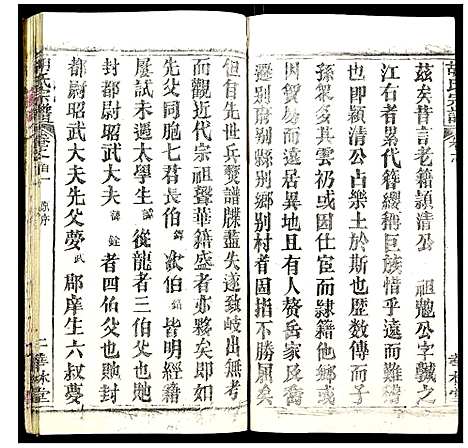 胡氏宗譜
茲矣昔言老籍頴清公 祖魁公字
江右者累代簪纓稱巨族惜乎遠而難稽
也即頴清公占樂土於斯也歷數傳而子
孫眾多其雲礽或因仕宦而隸籍他鄉或
因貿易而僑居且有人贅岳家民裔
遷別府別縣别鄉别村者固指不勝屈矣
但自先世兵燹譜牒盡失遂致岐出無考
而觀近代宗祖聲華籍盛者亦夥矣即如
先父同胞七君長伯 欽伯 皆明經籍
屢試未遇太學生 從龍者三伯父也貤
封都尉武大夫 銓 者四伯父也貤
都尉昭武大夫先父夢 武 郡庠生六叔夢
胡氏宗譜 原序 二 華林堂